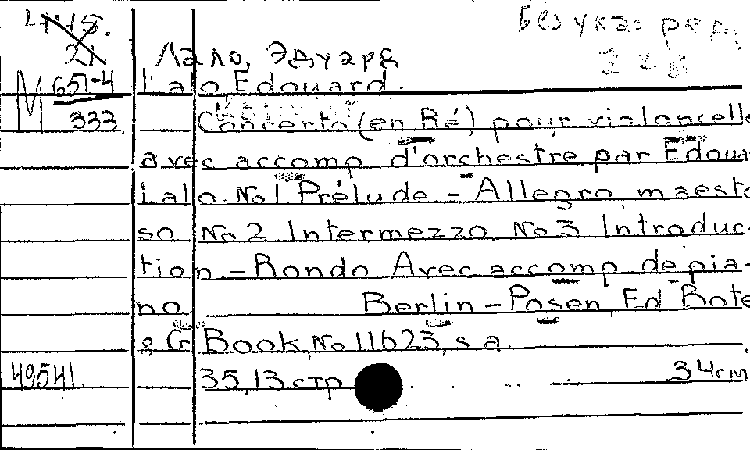 Без указ ред.
Лало, Эдуард
21
М 651-4
333
Lalo Edouard.
Concerto (en Ré) pour violoncelle
avec accomp d'orchestre par Edou
Lalo. No 1 Prélude - Allegro maest
so No 2 Intermezzo No 3 Introduc
tion - Rondo Avec accomp de pia-
no Berlin - Posen, Ed Bote
& G Book, No 11623, s a.
49541 35, 13 стр 34 см